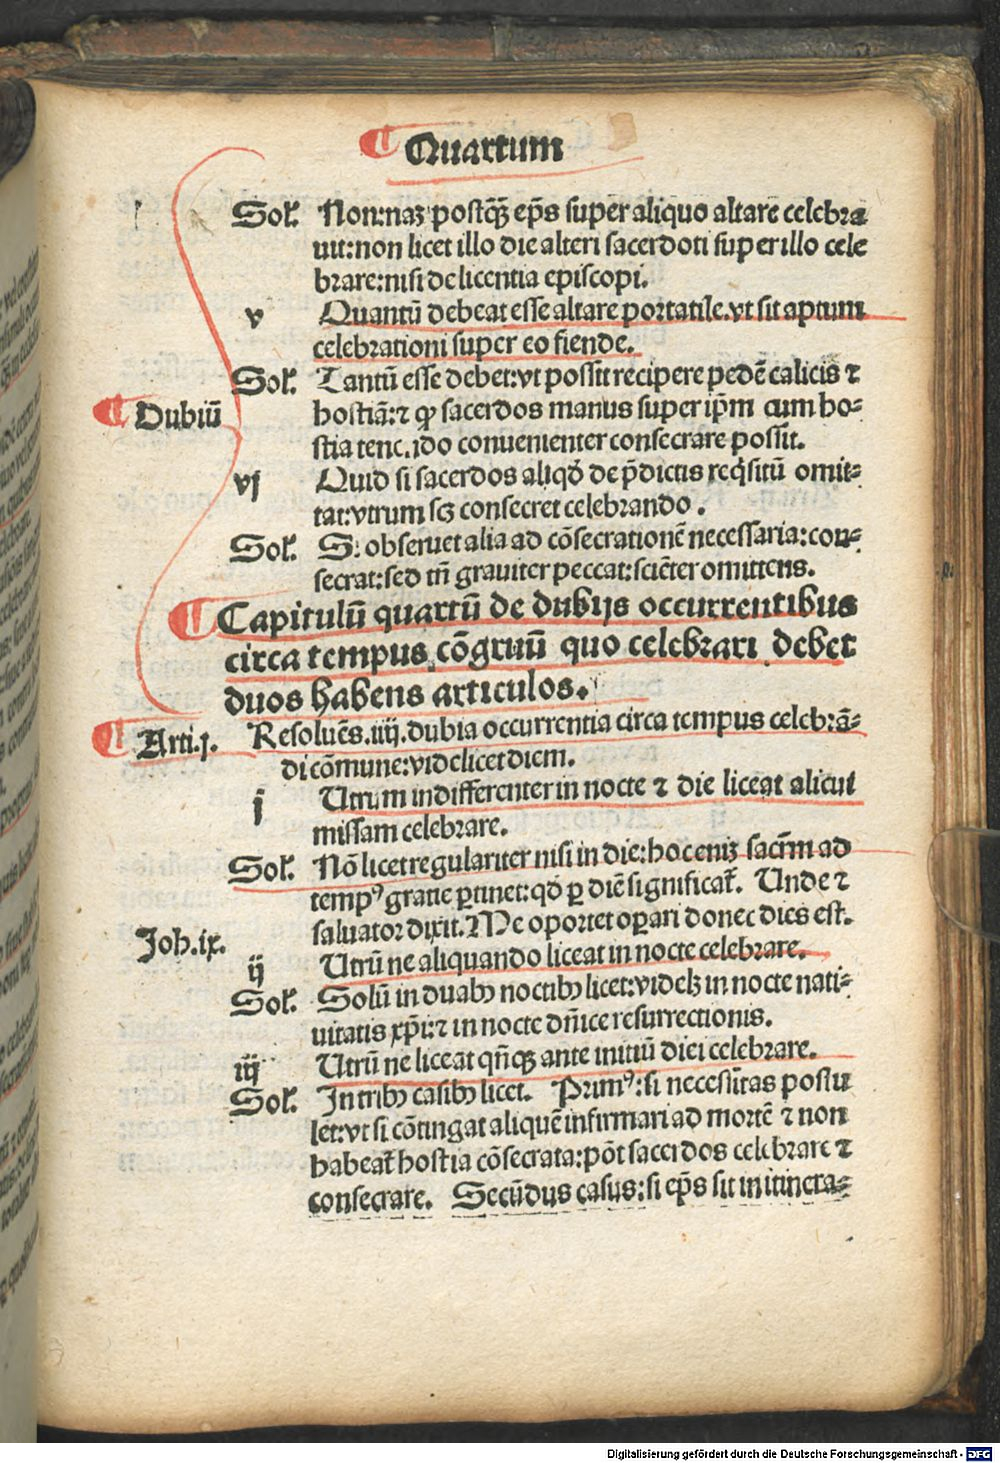 Quartum
Sol'. Non: naʒ postqᷓ ep̄s super aliquo altare celebra
uit: non licet illo die alteri sacerdoti super illo cele
brare: nisi de licentia episcopi.
v Quantū debeat esse altare portatile. vt sit aptum
celebrationi super eo fiende.
Sol'. Tantū esse debet: vt possit recipere pedē calicis ⁊
Dubiū hostiā: ⁊ ꝙ sacerdos manus super ip̄m cum ho⸗
stia tenēdo conuenienter consecrare possit.
vj Quid si sacerdos aliqđ de p̄dictis reqͥsitū omit⸗
tat: vtrum sꝫ consecret celebrando.
Sol'. Si obseruet alia ad cōsecrationē necessaria: con⸗
secrat: sed tn̄ grauiter peccat: sciēter omittens.
Capitulū quartū de dubijs occurrentibus
circa tempus cōgruū quo celebrari debet
duos habens articulos.
Arti.j. Resoluēs .iiij. dubia occurrentia circa tempus celebrā⸗
di cōmune: videlicet diem.
j Utrum indifferenter in nocte ⁊ die liceat alicui
missam celebrare.
Sol'. Nō licet regulariter nisi in die: hoc eniʒ sacr̄m ad
tempꝰ gratie ꝑtinet: qđ ꝑ diē significat̄. Unde ⁊
Joh.ix. saluator dixit. Me oportet oꝑari donec dies est.
ij Utrū ne aliquando liceat in nocte celebrare.
Sol'. Solū in duabꝫ noctibꝫ licet: videlꝫ in nocte nati⸗
uitatis xp̄i: ⁊ in nocte dn̄ice resurrectionis.
iij Utrū ne liceat qn̄qꝫ ante initiū diei celebrare.
Sol'. In tribꝫ casibꝫ licet. Primꝰ: si necessitas postu
let: vt si cōtingat aliquē infirmari ad mortē ⁊ non
habeat̄ hostia cōsecrata: pōt sacerdos celebrare ⁊
consecrare. Secūdus casus: si ep̄s sit in itinera⸗
Digitalisierung gefördert durch die Deutsche Forschungsgemeinschaft - DFG